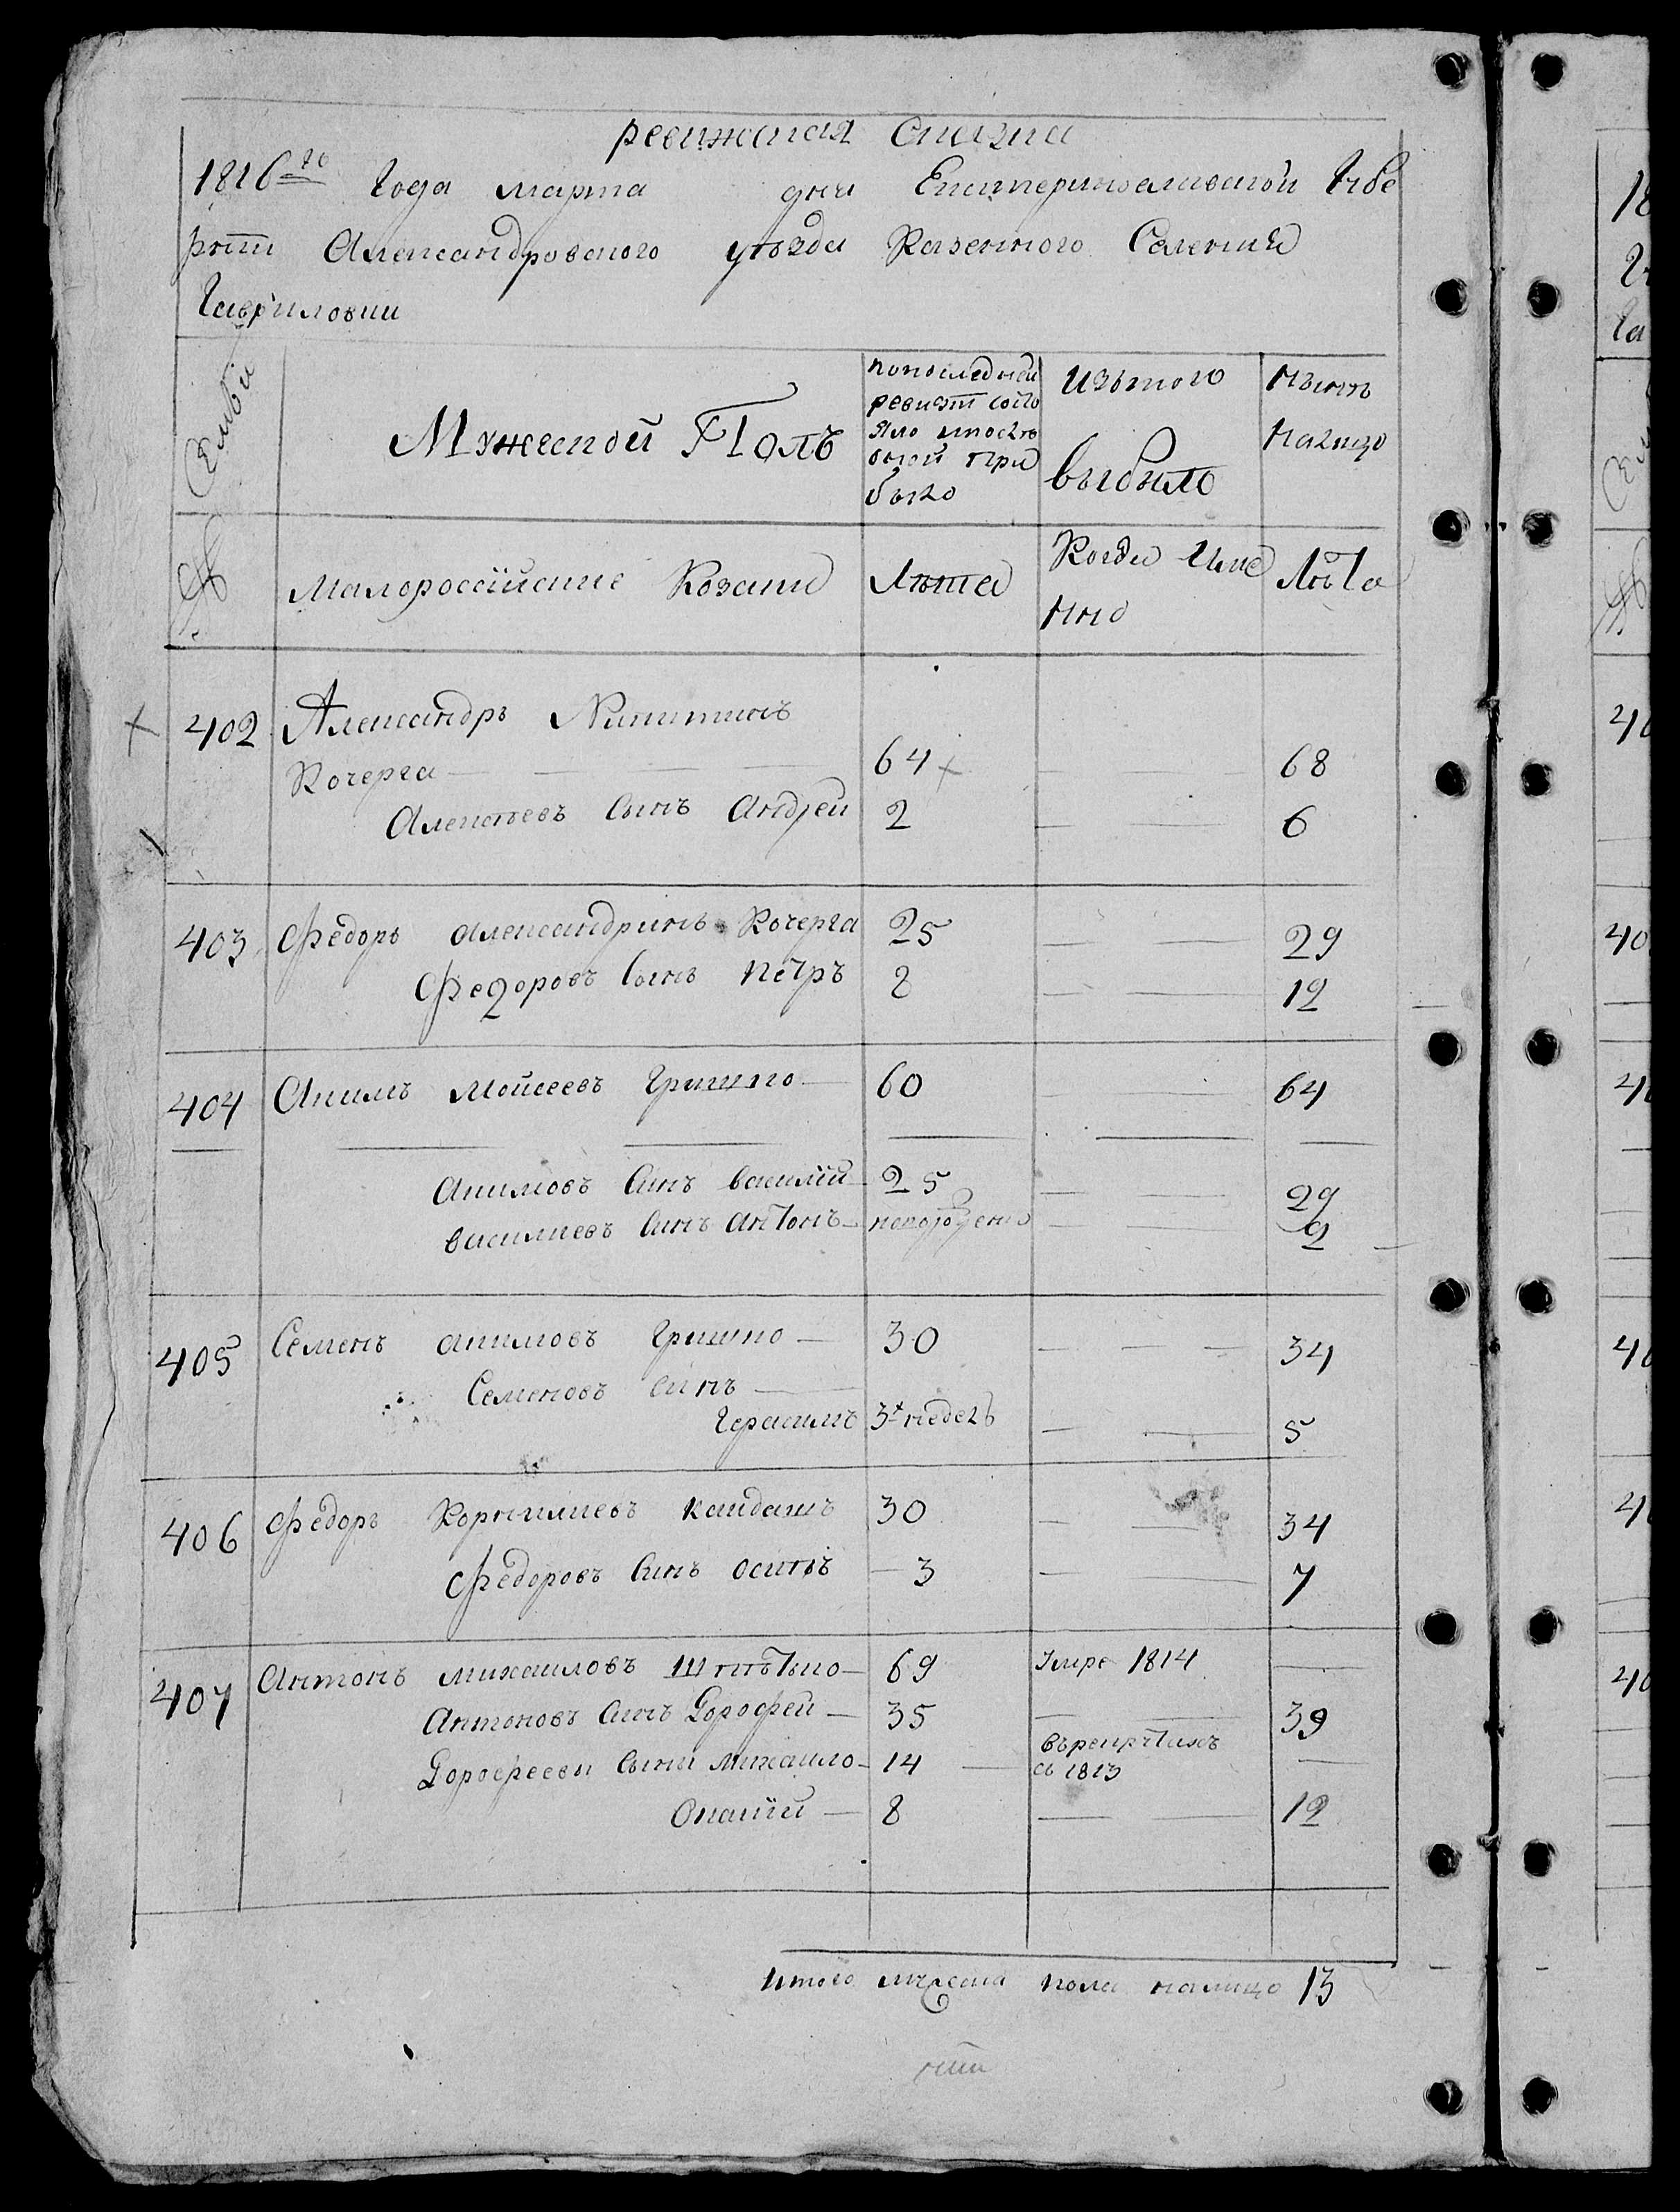 ревижская сказка
1816го Года марта дня Екатеринославской Губе
рнии Александровского уѣзда Казенного Селения
Гавриловки
Семьи
Мужеской Полъ
попоследней
ревизии состо
яло ипослѣ
оной при
было
изътого
выбыло
нынѣ
налицо
№
Малоросеїйские Козаки
Лѣта
Когда Име
нно
Лѣта
402
Александръ Никитинъ
Кочерга
64
68
Алексѣевъ сынъ Андрей
2
6
403
Федоръ Александринъ Кочерга
25
29
Федоровъ сынъ Петръ
8
12
404
Акимъ Мойсеевъ Гришко
60
64
Акимовъ синъ василїй
25
29
василиевъ синъ Антонъ
новорожденъ
2
405
Семенъ акимовъ Гришко
30
34
Семеновъ синъ
Герасимъ
3х недель
5
406
Федоръ Корнилиевъ кайдашъ
30
34
Федоровъ синъ осипъ
3
7
407
Антонъ михайловъ Шпѣтко
69
Умре 1814
Антоновъ синъ Дорофей
35
39
Дорофееви сыни михайло
14
върекрутахъ
съ 1813
8
12
Итого мужеска пола налицо 13